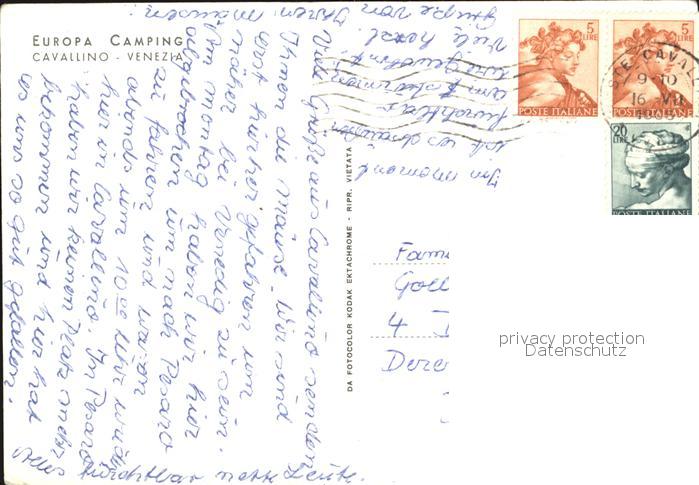 EUROPA CAMPING
CAVALLINO - VENEZIA
Viele Grüße aus Cavalino senden
Ihnen die Mäuse. Wir sind
erst hierher gefahren um
näher bei Venedig zu sein.
Am Montag haben wir hier
abgebrochen um nach Pesaro
zu fahren und waren
abends um 10 Uhr wieder
hier in Cavallino. In Pesaro
haben wir keinen Platz mehr
bekommen und hier hat
es uns so gut gefallen.
Alles furchtbar nette Leute.
Im Moment
ist es draußen
furchtbar
am
und
Viele herzl.
Grüße von
Ihren Mäusen.
DA FOTOCOLOR KODAK EKTACHROME - RIPR. VIETATA
5
LIRE
POSTE ITALIANE
5
LIRE
POSTE ITALIANE
20
LIRE
POSTE ITALIANE
9-10
16 -VII
Fam
4
privacy protection
Datenschutz